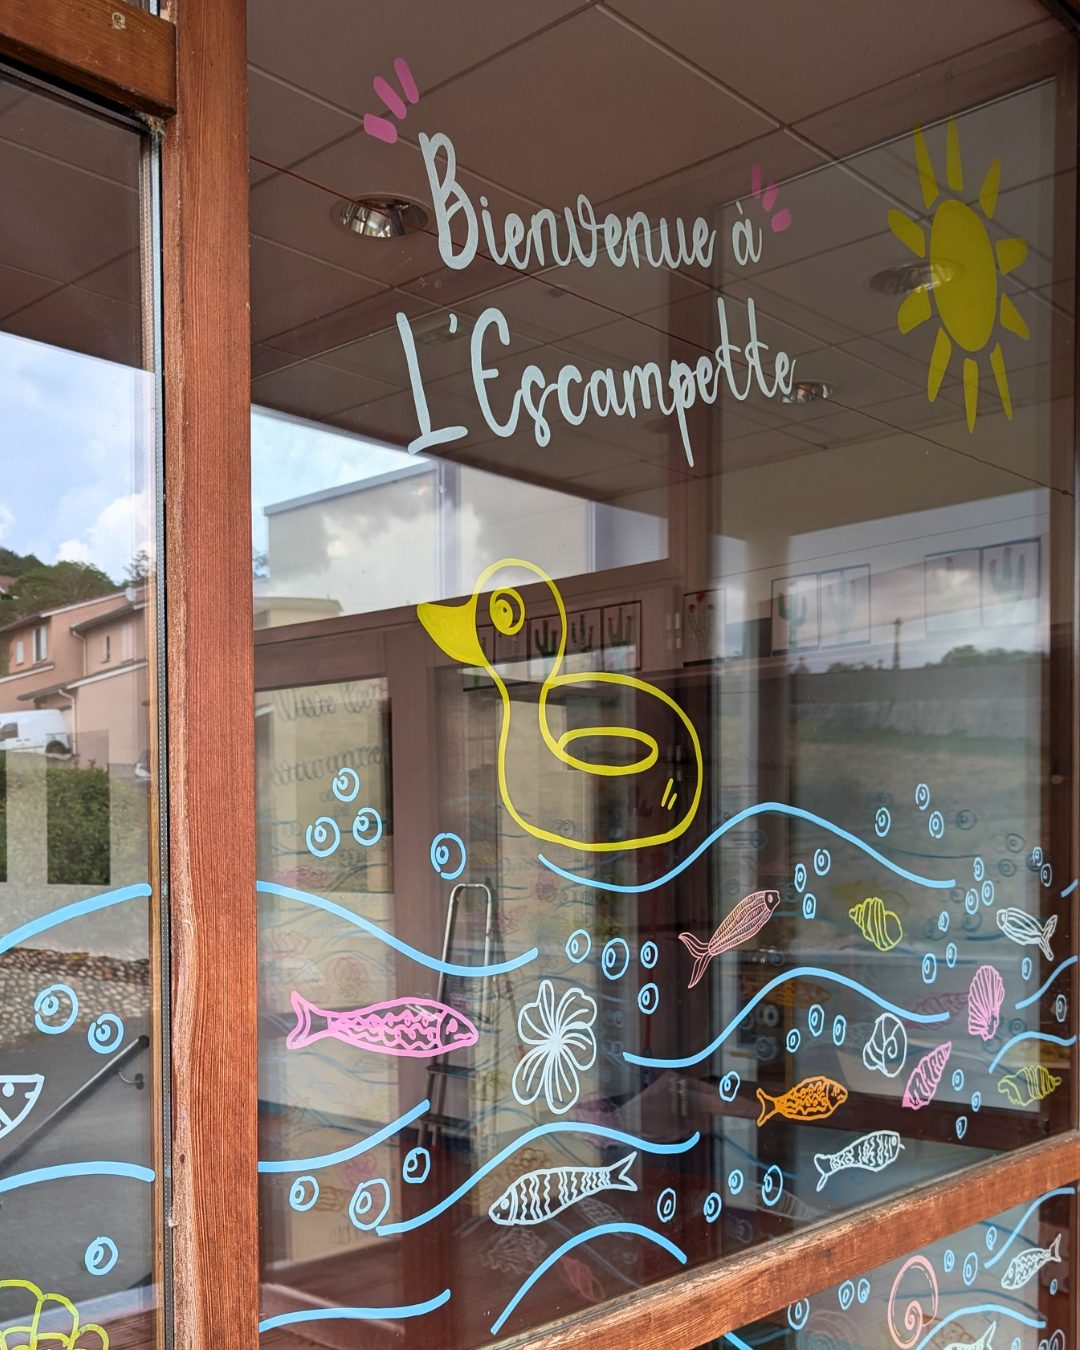 Bienvenue à
L'Escampette